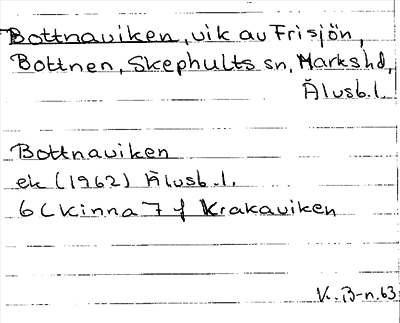 Bottnaviken, vik av Frisjön,
Bottnen, Skephults sn, Markshd,
Älvsb.l.
Bottnaviken
ek (1962) Älvsb.l.
6C Kinna 7 f Krakaviken
K. B-n. 63